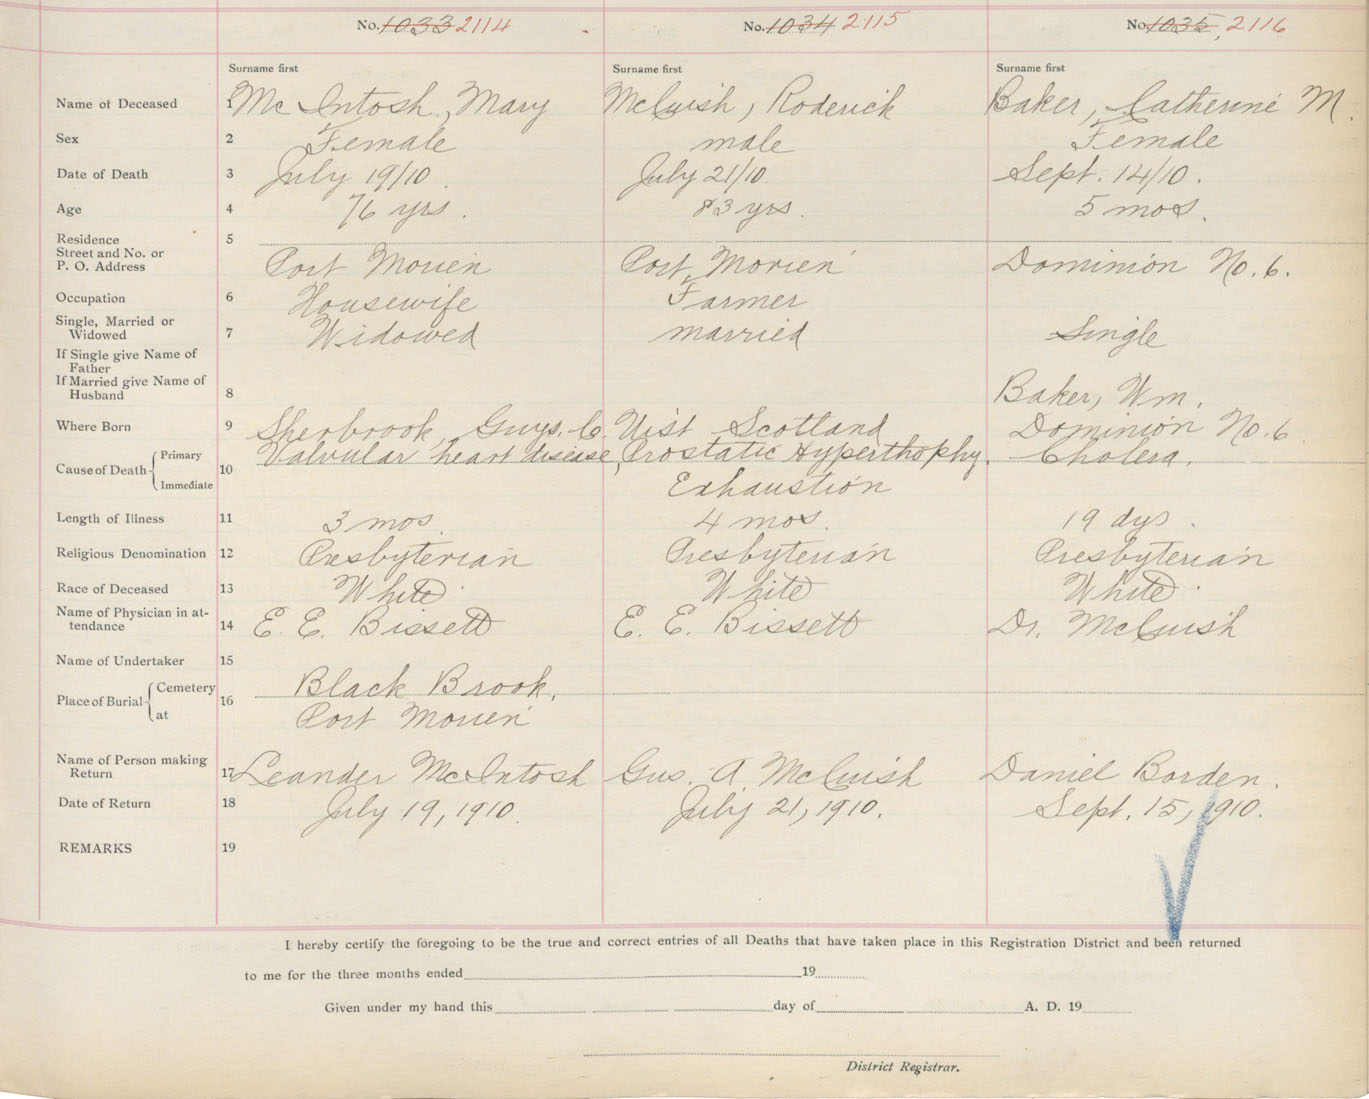 No. 1033 2114 No. 1034 2115 No. 1035, 2116
Surname first Surname first Surname first
Name of Deceased 1 McIntosh, Mary McCuish, Roderick Baker, Catherine M.
Sex 2 Female male Female
Date of Death 3 July 19/10. July 21/10. Sept. 14/10.
Age 4 76 yrs. 83 yrs. 5 mos.
Residence 5
Street and No. or
P. O. Address Port Morien Port Morien Dominion No. 6.
Occupation 6 Housewife Farmer
Single, Married or
Widowed 7 Widowed married Single
If Single give Name of
Father
If Married give Name of
Husband 8 Baker, Wm.
Where Born 9 Sherbrook, Guys. C. Uist Scotland Dominion No. 6
Cause of Death Primary Valvular heart disease, Prostatic Hyperthophy. Cholera.
Immediate 10 Exhaustion
Length of Illness 11 3 mos 4 mos. 19 dys.
Religious Denomination 12 Presbyterian Presbyterian Presbyterian
Race of Deceased 13 White White White
Name of Physician in at-
tendance 14 E. E. Bissett E. E. Bissett Dr. McCuish
Name of Undertaker 15
Place of Burial Cemetery 16 Black Brook,
at Port Morien
Name of Person making
Return 17 Leander McIntosh Gus. A McCuish Daniel Borden.
Date of Return 18 July 19, 1910. July 21, 1910. Sept. 15, 1910.
REMARKS 19
I hereby certify the foregoing to be the true and correct entries of all Deaths that have taken place in this Registration District and been returned
to me for the three months ended 19
Given under my hand this day of A. D. 19
District Registrar.